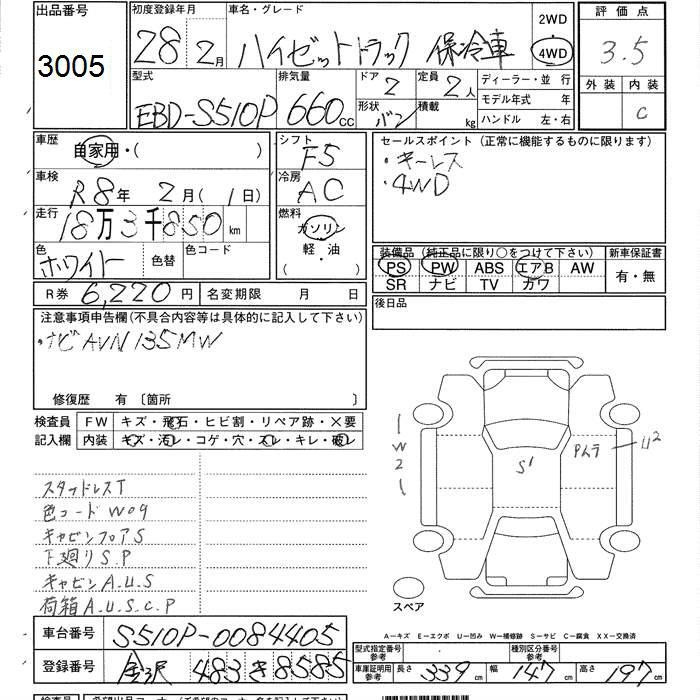 出品番号
3005
初度登録年月
28年 2月
車名・グレード
ハイゼットトラック 保冷車
2WD
4WD
評価点
3.5
外装 内装
C
型式
EBD-S510P
排気量
660cc
ドア
2
定員
2人
形状
バン
積載
kg
ディーラー・並 行
モデル年式 年
ハンドル 左・右
車歴
自家用・( )
シフト
F5
セールスポイント（正常に機能するものに限ります）
・キーレス
・4WD
車検
R8年 2月( 1日)
冷房
AC
走行
18万3千850km
燃料
ガソリン
軽・油
( )
色
ホワイト
色替
色コード
装備品 (純正品に限り○をつけて下さい)
新車保証書
PS PW ABS エアB AW
SR ナビ TV カワ
有・無
R券 6,220円
名変期限 月 日
後日品
注意事項申告欄(不具合内容等は具体的に記入して下さい)
・ナビAVN135MW
修復歴 有 〔箇所 〕
検査員
記入欄
FW キズ・飛石・ヒビ割・リペア跡・×要
内装 キズ・汚レ・コゲ・穴・スレ・キレ・破レ
スタッドレスT
色コード W09
キャビンフロアS
下廻りS.P
キャビンA.U.S
荷箱A.U.S.C.P
W2
S1
Pムラ
U2
スペア
A－キズ E－エクボ U－凹み W－補修跡 S－サビ C－腐食 XX－交換済
車台番号
S510P-0084405
登録番号
金沢 483 き 8585
型式指定番号
参考
種別区分番号
参考
車庫証明用
参考
長さ 339cm
幅 147cm
高さ 197cm
検査員